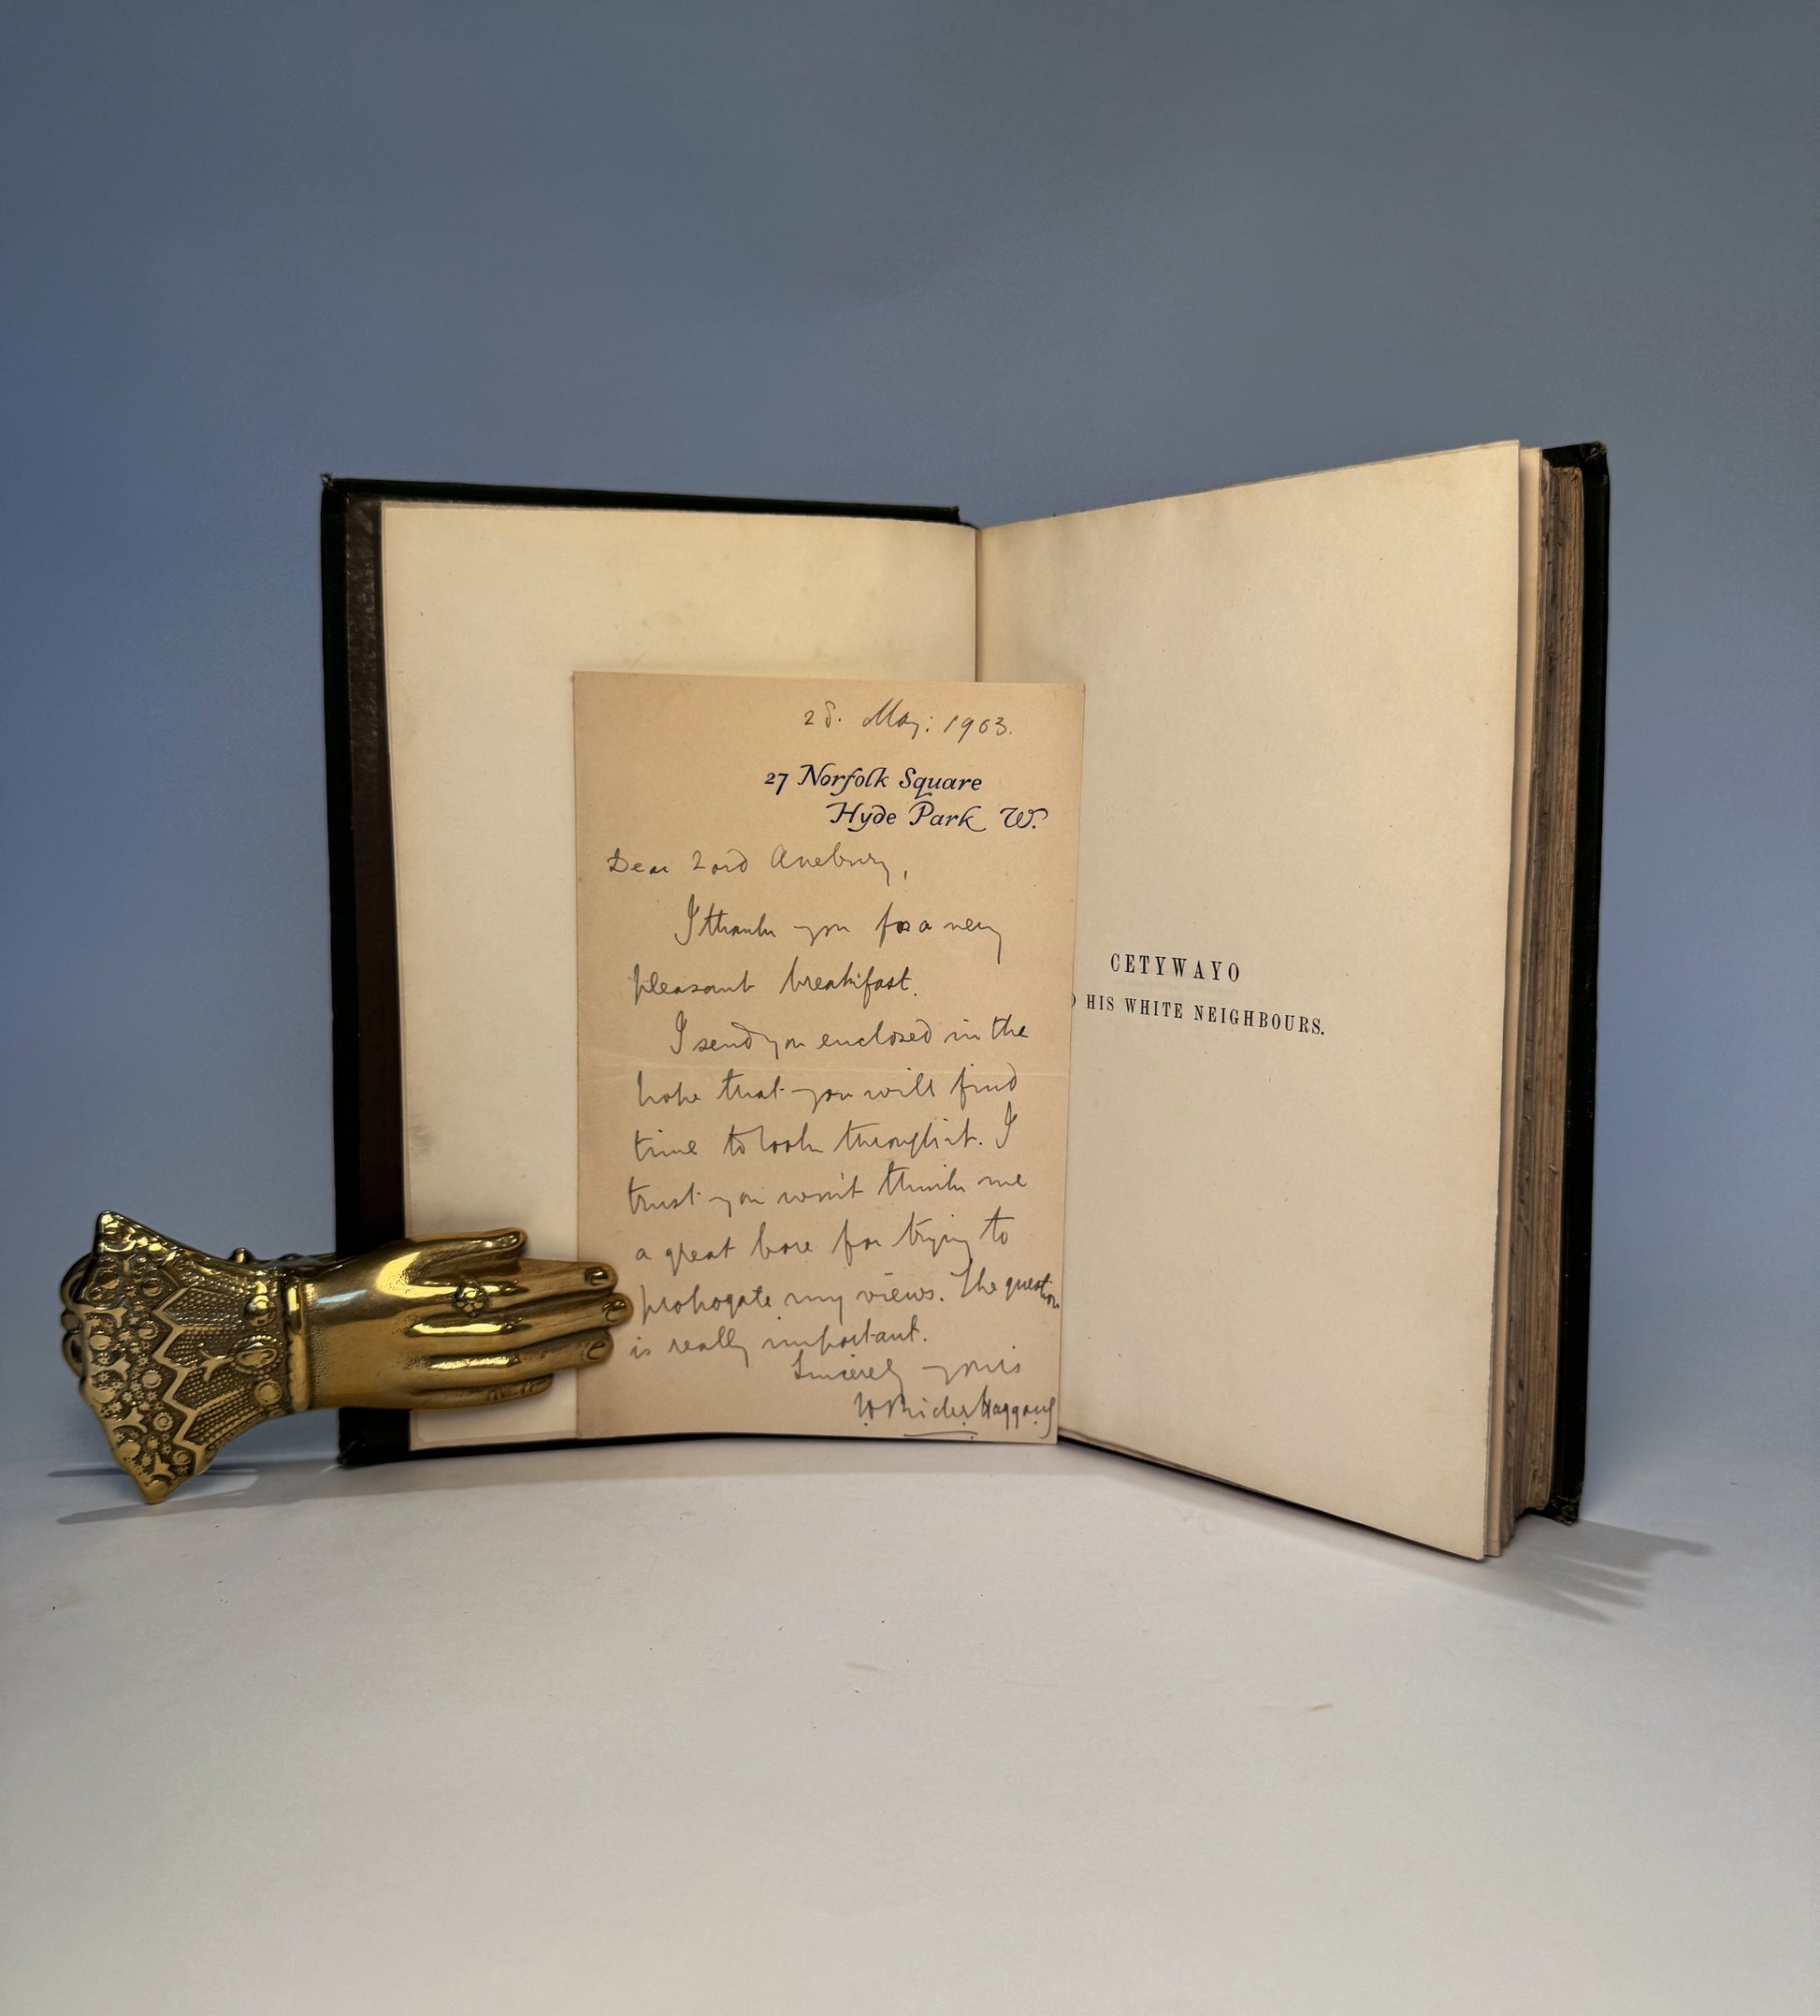 28. May: 1903.
27 Norfolk Square
Hyde Park W.
Dear Lord Avebury,
I thank you for a very
pleasant breakfast.
I send you enclosed in the
hope that you will find
time to look through it. I
trust you won't think me
a great bore for trying to
propogate my views. The question
is really important.
Sincerely yours
H Rider Haggard
CETYWAYO
D HIS WHITE NEIGHBOURS.